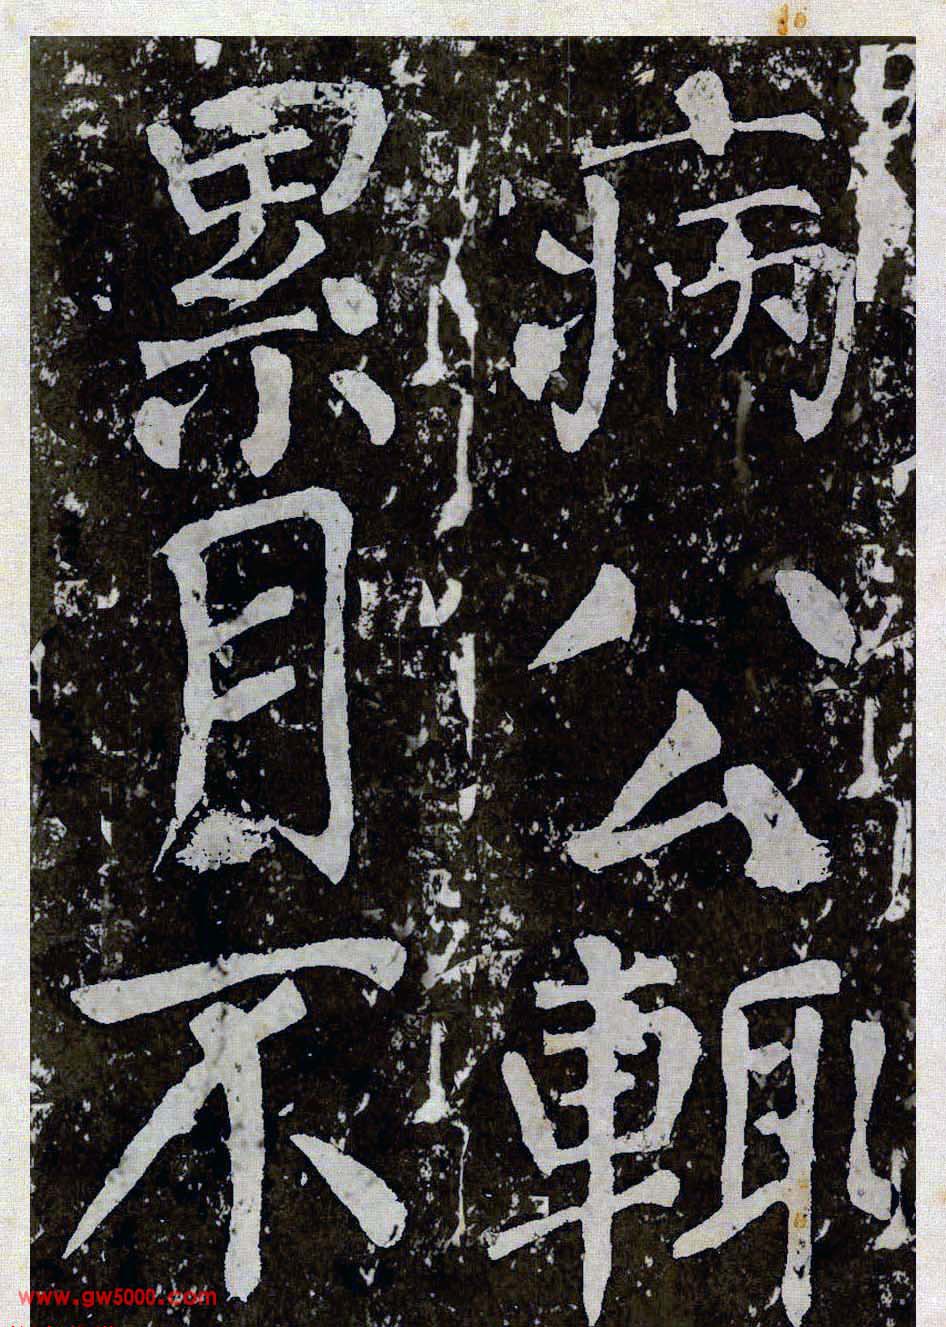 病公輙
累月不
www.gw5000.com